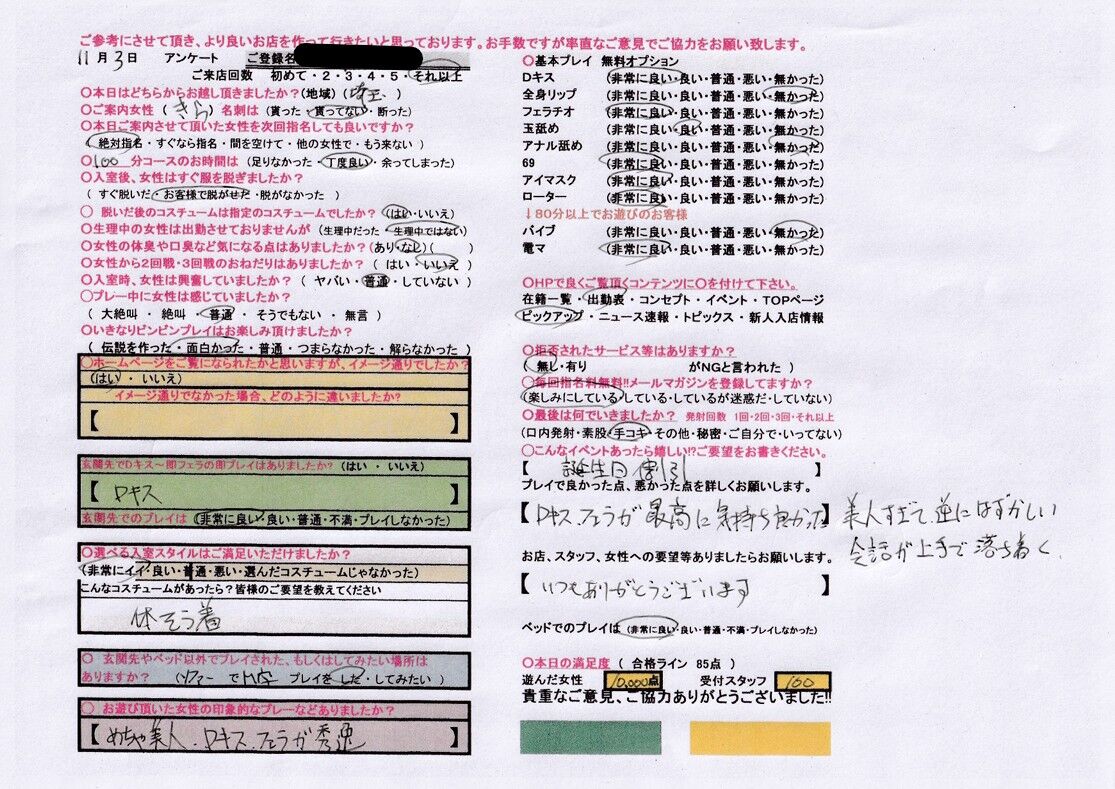 ご参考にさせて頂き、より良いお店を作って行きたいと思っております。お手数ですが率直なご意見でご協力をお願い致します。
11月3日 アンケート ご登録名
ご来店回数 初めて・2・3・4・5・それ以上
〇本日はどちらからお越し頂きましたか?(地域)(埼玉)
〇ご案内女性(きら)名刺は(貰った・貰ってない・断った)
〇本日ご案内させて頂いた女性を次回指名しても良いですか?
(絶対指名・すぐなら指名・間を空けて・他の女性で・もう来ない)
〇100分コースのお時間は(足りなかった・丁度良い・余ってしまった)
〇入室後、女性はすぐ服を脱ぎましたか?
(すぐ脱いだ・お客様で脱がせた・脱がなかった)
〇脱いだ後のコスチュームは指定のコスチュームでしたか?(はい・いいえ)
〇生理中の女性は出勤させておりませんが(生理中だった・生理中ではない)
〇女性の体臭や口臭など気になる点はありましたか?(あり・なし)( )
〇女性から2回戦・3回戦のおねだりはありましたか?(はい・いいえ)
〇入室時、女性は興奮していましたか?(ヤバい・普通・していない)
〇プレー中に女性は感じていましたか?
(大絶叫・絶叫・普通・そうでもない・無言)
〇いきなりビンビンプレイはお楽しみ頂けましたか?
(伝説を作った・面白かった・普通・つまらなかった・解らなかった)
〇ホームページをご覧になられたかと思いますが、イメージ通りでしたか?
(はい・いいえ)
イメージ通りでなかった場合、どのように違いましたか?
【 】
玄関先でDキス~即フェラの即プレイはありましたか?(はい・いいえ)
【 Dキス 】
玄関先でのプレイは(非常に良い・良い・普通・不満・プレイしなかった)
〇選べる入室スタイルはご満足いただけましたか?
(非常にイイ・良い・普通・悪い・選んだコスチュームじゃなかった)
こんなコスチュームがあったら?皆様のご要望を教えてください
体そう着
〇玄関先やベッド以外でプレイされた、もしくはしてみたい場所は
ありますか?(ソファー で プレイを した・してみたい)
〇お遊び頂いた女性の印象的なプレーなどありましたか?
【めちゃ美人、Dキス、フェラが秀逸】
〇基本プレイ 無料オプション
Dキス (非常に良い・良い・普通・悪い・無かった)
全身リップ (非常に良い・良い・普通・悪い・無かった)
フェラチオ (非常に良い・良い・普通・悪い・無かった)
玉舐め (非常に良い・良い・普通・悪い・無かった)
アナル舐め (非常に良い・良い・普通・悪い・無かった)
69 (非常に良い・良い・普通・悪い・無かった)
アイマスク (非常に良い・良い・普通・悪い・無かった)
ローター (非常に良い・良い・普通・悪い・無かった)
↓80分以上でお遊びのお客様
バイブ (非常に良い・良い・普通・悪い・無かった)
電マ (非常に良い・良い・普通・悪い・無かった)
〇HPで良くご覧頂くコンテンツに〇を付けて下さい。
在籍一覧・出勤表・コンセプト・イベント・TOPページ
ピックアップ・ニュース速報・トピックス・新人入店情報
〇拒否されたサービス等はありますか?
(無し・有り がNGと言われた)
〇毎回指名料無料!!メールマガジンを登録してますか?
(楽しみにしている・している・しているが迷惑だ・していない)
〇最後は何でいきましたか? 発射回数 1回・2回・3回・それ以上
(口内発射・素股・手コキ・その他・秘密・ご自分で・いってない)
〇こんなイベントあったら嬉しい!?ご要望をお書きください。
【 誕生日割引 】
プレイで良かった点、悪かった点を詳しくお願いします。
【Dキス、フェラが最高に気持ち良かった】美人すぎて、逆にはずかしい
会話が上手で落ち着く、
お店、スタッフ、女性への要望等ありましたらお願いします。
【いつもありがとうございます 】
ベッドでのプレイは(非常に良い・良い・普通・不満・プレイしなかった)
〇本日の満足度(合格ライン 85点)
遊んだ女性 10,000点 受付スタッフ 100
貴重なご意見、ご協力ありがとうございました!!